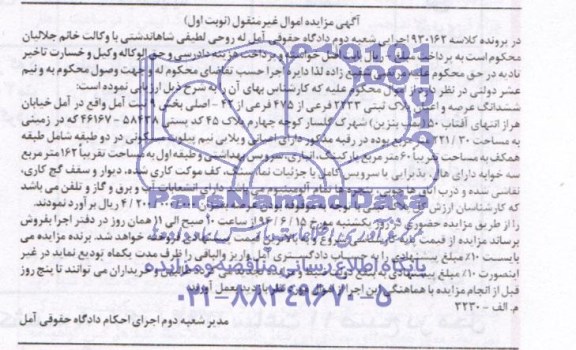 آگهی مزایده اموال غیر منقول (نوبت اول)
در پرونده کلاسه ۹۳۰۱۶۲ اجرایی شعبه دوم دادگاه حقوقی آمل له روحی لطیفی شاهاندشتی با وکالت خانم جلالیان
محکوم است به پرداخت مبلغ ریال بابت اصل خواسته و پرداخت هزینه دادرسی و حق الوکاله وکیل و خسارت تاخیر
تادیه در حق محکوم علیه مرتضی زاده لذا دایره اجرا حسب تقاضای محکوم له و جهت وصول محکوم به و نیم
عشر دولتی در نظر دارد از اموال محکوم علیه که کارشناس بهای آن را به شرح ذیل ارزیابی نموده است:
ششدانگ عرصه و اعیان پلاک ثبتی ۲۲۳۳ فرعی از ۴۷۵ فرعی از ۴۳ - اصلی بخش ۹ ثبت آمل واقع در آمل خیابان
هراز انتهای آفتاب ۵۰ (پمپ بنزین) شهرک گلسار کوچه چهارم پلاک ۴۵ کد پستی ۵۸۴۳۸ - ۴۶۱۶۷ که در زمینی
به مساحت ۲۲۱/۳۰ متر مربع بوده در رقبه مذکور دارای اعیانی ویلایی نیم پیلوت مسکونی در دو طبقه شامل طبقه
همکف به مساحت تقریباً ۶۰ متر مربع پارکینگ، انباری، سرویس بهداشتی و طبقه اول به مساحت تقریباً ۱۶۲ متر مربع
سه خوابه دارای هال، پذیرایی با سرویس کامل با جزئیات نما سنگ، کف موکت کاری شده، دیوار و سقف گچ کاری،
نقاشی شده و درب اتاق ها چوبی، پنجره ها تمام آلومینیوم می باشد دارای انشعابات آب و برق و گاز و تلفن می باشد
که کارشناسان ارزش ۴/۲۰ ریال برآورد نمودند.
را از طریق مزایده حضوری در روز یکشنبه مورخ ۹۶/۶/۱۵ از ساعت ۱۰ صبح الی ۱۱ همان روز در دفتر اجرا بفروش
برساند مزایده از قیمت پایه کارشناسی شروع و به بالاترین قیمت پیشنهادی فروخته خواهد شد. برنده مزایده می
بایست ۱۰٪ مبلغ پیشنهادی را به حساب دادگستری آمل واریز والباقی را ظرف مدت یکماه تودیع نماید در غیر
اینصورت ۱۰٪ مبلغ پیشنهادی به نفع دولت ضبط خریداران می توانند تا پنج روز
قبل از انجام مزایده با هماهنگی این اجرا از اموال مورد نظر بازدید بعمل آورند.
م. الف - ۲۲۳۰
مدیر شعبه دوم اجرای احکام دادگاه حقوقی آمل
ParsNamadData
پایگاه اطلاع رسانی مناقصه و مزایده
۰۲۱-۸۸۳۴۹۶۷۰-۵